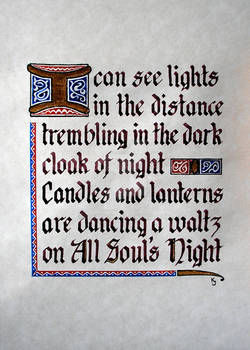 I can see lights
in the distance
trembling in the dark
cloak of night
Candles and lanterns
are dancing a waltz
on All Soul's Night